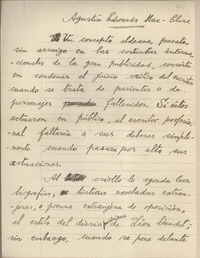 Agustín Edwards Mac-Clure
Un concepto aldeano, pacato,
sin arraigo en las costumbres interna-
cionales de la gran publicidad, consiste
en condenar el juicio crítico del escritor
cuando se trata de parientes o de
personajes fallecidos. Si éstos
actuaron en público, el escritor profesio-
nal faltaría a sus deberes simple-
mente cuando pasara por alto sus
actuaciones.
Al criollo le agrada leer
biografías, historias noveladas extran-
jeras, o prensa extranjera de oposición,
al estilo del diario de Léon Daudet;
sin embargo, cuando se pone delante